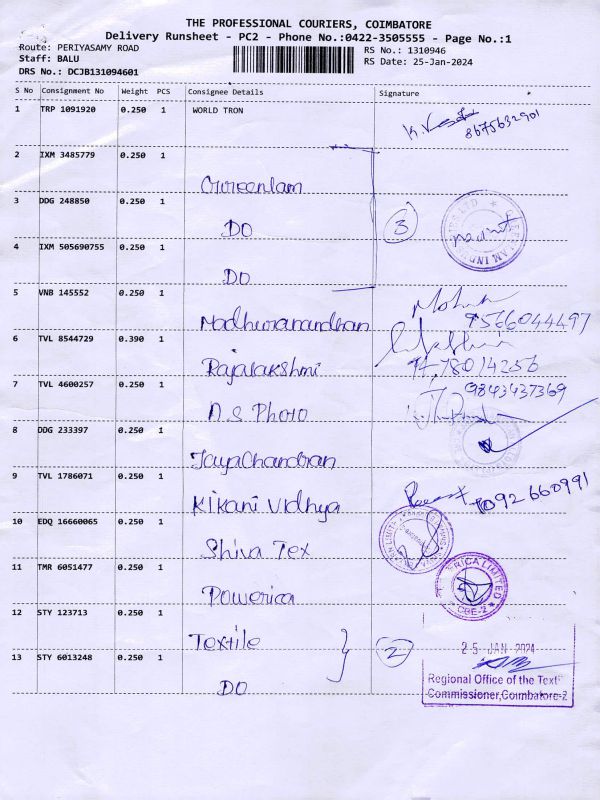 THE PROFESSIONAL COURIERS, COIMBATORE
Delivery Runsheet - PC2 - Phone No.:0422-3505555 - Page No.:1
Route: PERIYASAMY ROAD
RS No.: 1310946
Staff: BALU
RS Date: 25-Jan-2024
DRS No.: DCJB131094601
S No Consignment No Weight PCS Consignee Details Signature
1 TRP 1091920 0.250 1 WORLD TRON
8675632901
2 IXM 3485779 0.250 1
Greenlam
3 DDG 248850 0.250 1
DO 3
4 IXM 505690755 0.250 1
DO
5 VNB 145552 0.250 1
Madhuranandhan 9566044497
6 TVL 8544729 0.390 1
Rajalakshmi
7 TVL 4600257 0.250 1 9843437369
D S Photo
8 DDG 233397 0.250 1
JayaChandran
9 TVL 1786071 0.250 1
Kikani Vidhya
10 EDQ 16660065 0.250 1
Shiva Tex
11 TMR 6051477 0.250 1
Powerica
ERICA LIMITED
CBE-2
12 STY 123713 0.250 1
Textile 2
25 JAN 2024
13 STY 6013248 0.250 1
DO
Regional Office of the Text
Commissioner, Coimbatore-2